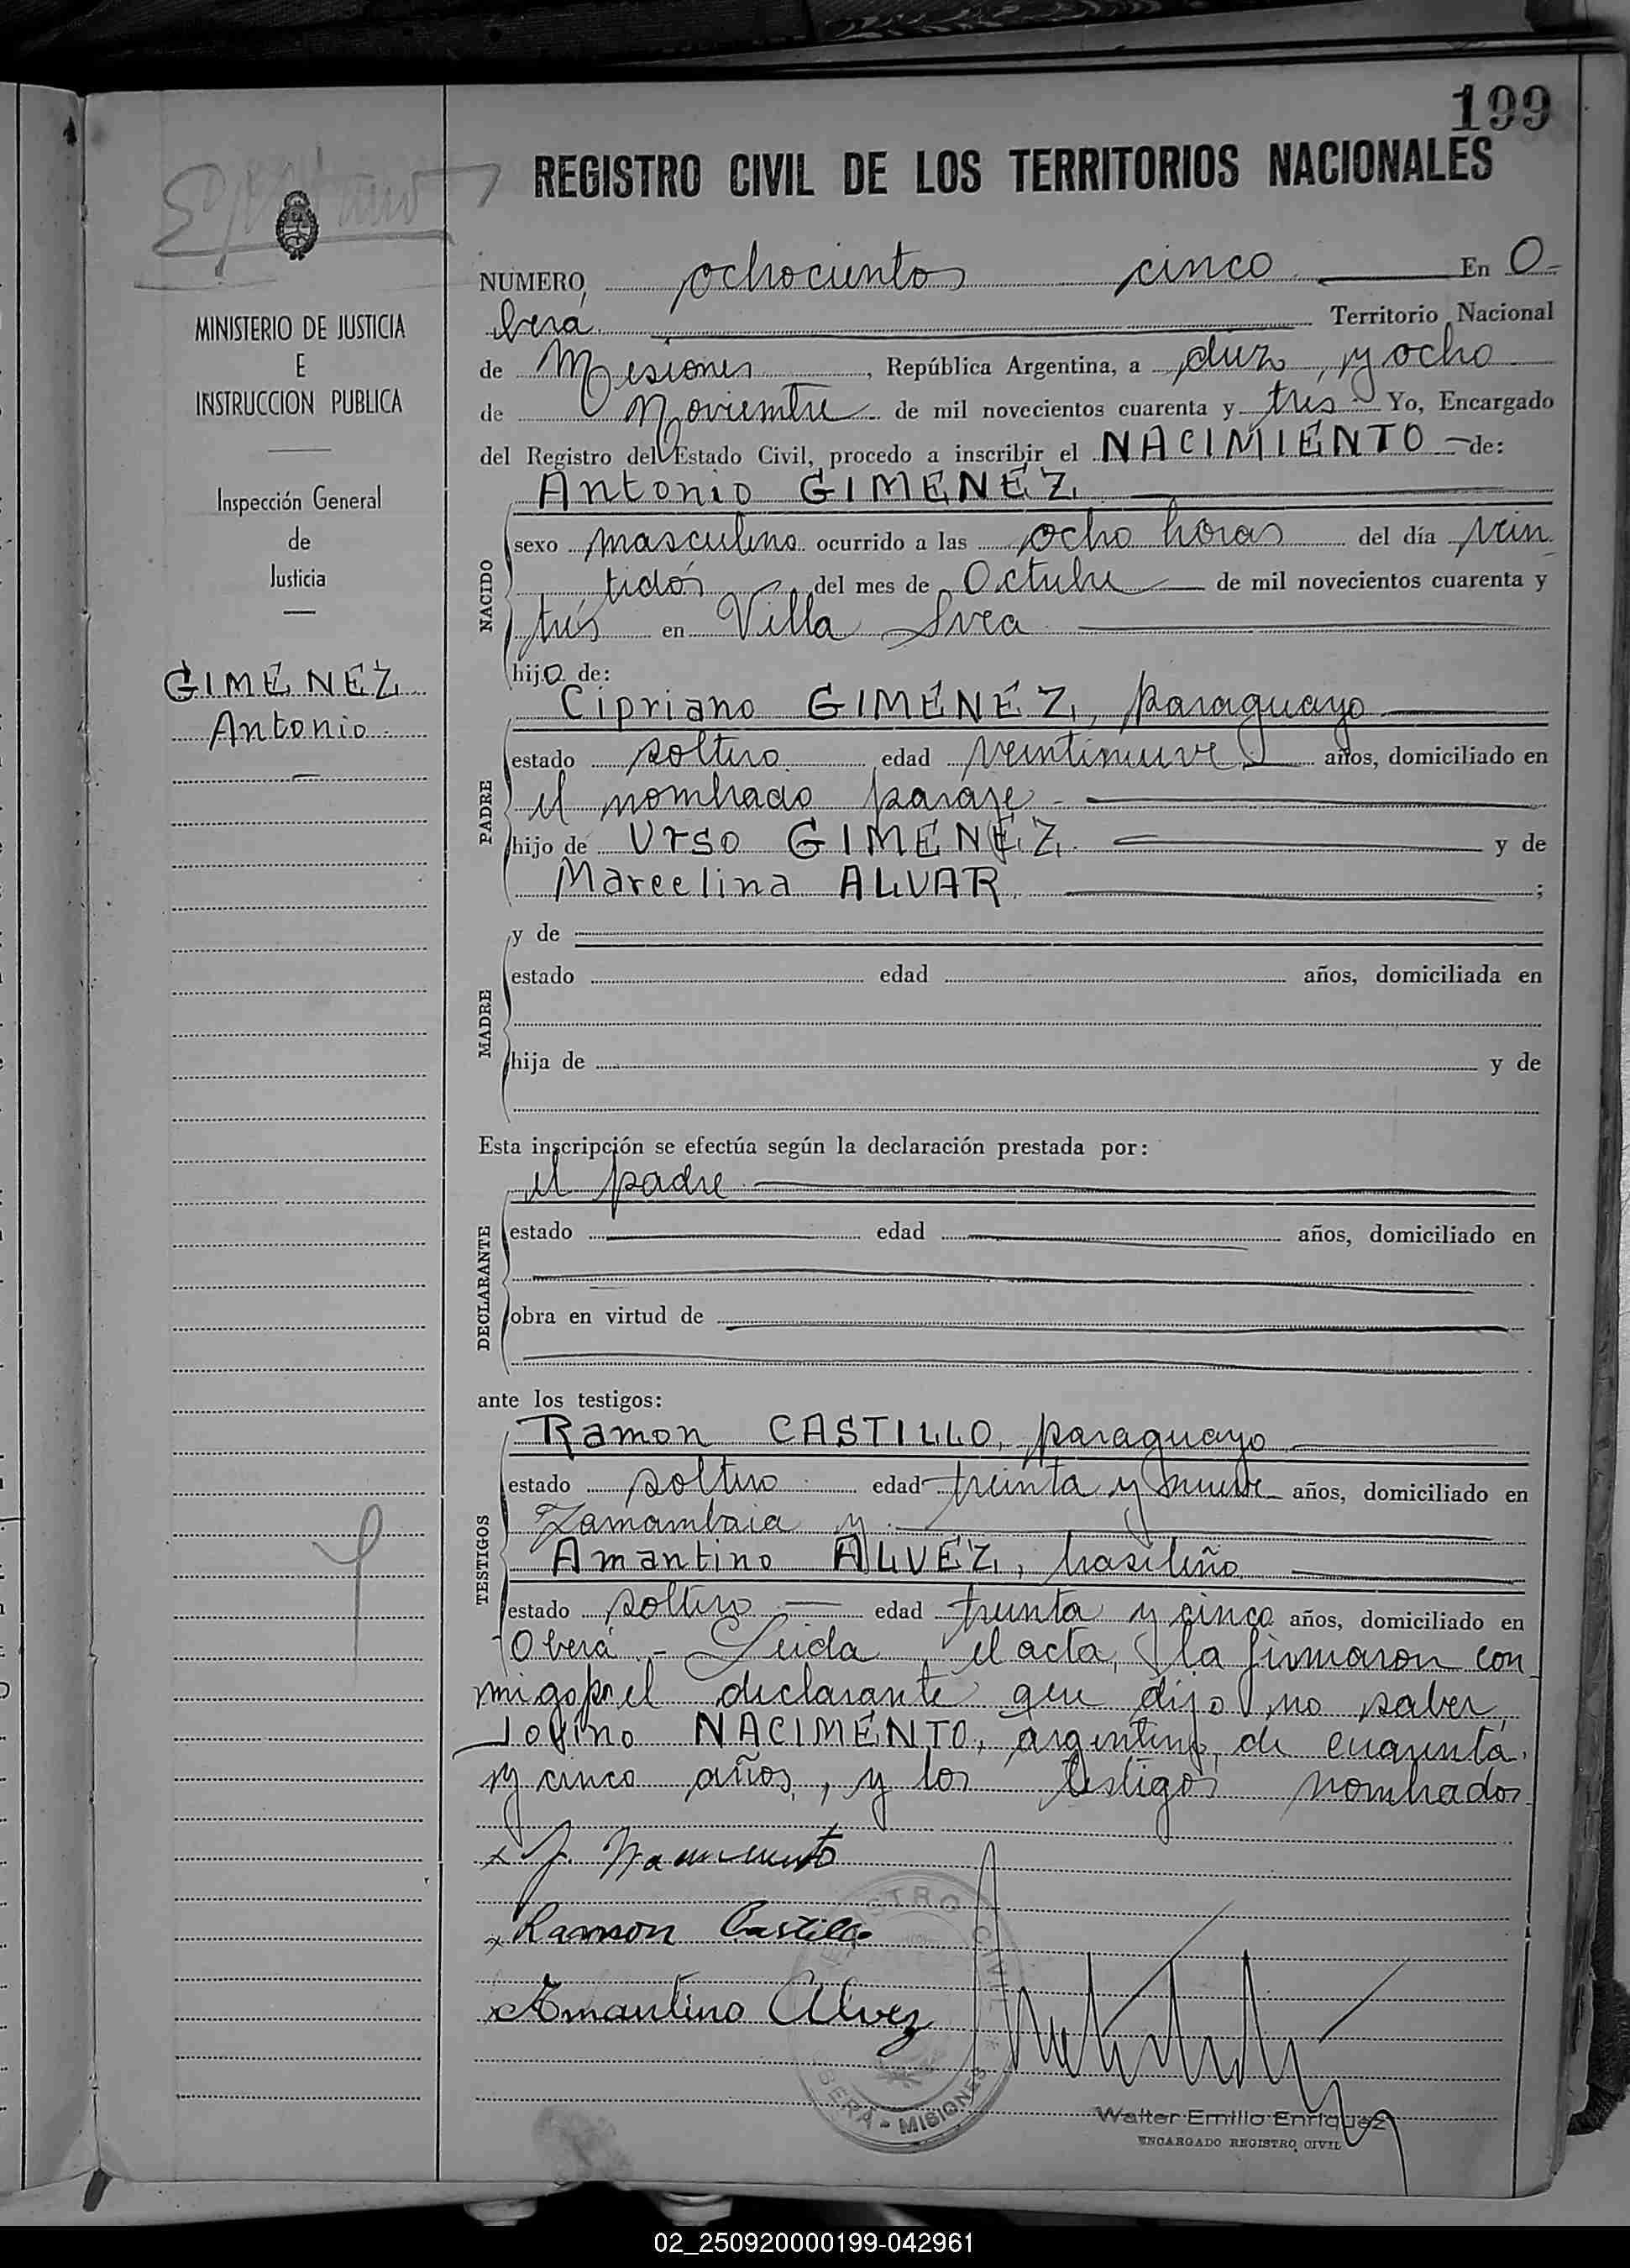 199
REGISTRO CIVIL DE LOS TERRITORIOS NACIONALES
MINISTERIO DE JUSTICIA
E
INSTRUCCION PUBLICA
Inspección General
de
Justicia
GIMÉNEZ
Antonio
NUMERO, ochocientos cinco En O-
berá Territorio Nacional
de Misiones, República Argentina, a diez y ocho
de Noviembre de mil novecientos cuarenta y tres Yo, Encargado
del Registro del Estado Civil, procedo a inscribir el NACIMIENTO de:
NACIDO
Antonio GIMÉNEZ
sexo masculino ocurrido a las ocho horas del día vein
tidós del mes de Octubre de mil novecientos cuarenta y
trés en Villa Svea
hijo de:
PADRE
Cipriano GIMÉNEZ, paraguayo
estado soltero edad veintinueve años, domiciliado en
el nombrado paraje
hijo de Urso GIMÉNEZ y de
Marcelina ALVAR ;
MADRE
y de
estado edad años, domiciliada en
hija de y de
Esta inscripción se efectúa según la declaración prestada por:
DECLARANTE
el padre
estado edad años, domiciliado en
obra en virtud de
ante los testigos:
TESTIGOS
Ramon CASTILLO, paraguayo
estado soltero edad treinta y nueve años, domiciliado en
Zamambaia y
Amantino ALVEZ, brasileño
estado soltero edad treinta y cinco años, domiciliado en
Oberá - Leida el acta, la firmaron con
migo pr. el declarante que dijo no saber
Jovino NACIMENTO, argentino, de cuarenta
y cinco años, y los testigos nombrados
x J. Nacimento
x Ramon Castillo
x Amantino Alvez
REGISTRO CIVIL
OBERÁ - MISIONES
Walter Emilio Enriquez
ENCARGADO REGISTRO CIVIL
02_250920000199-042961